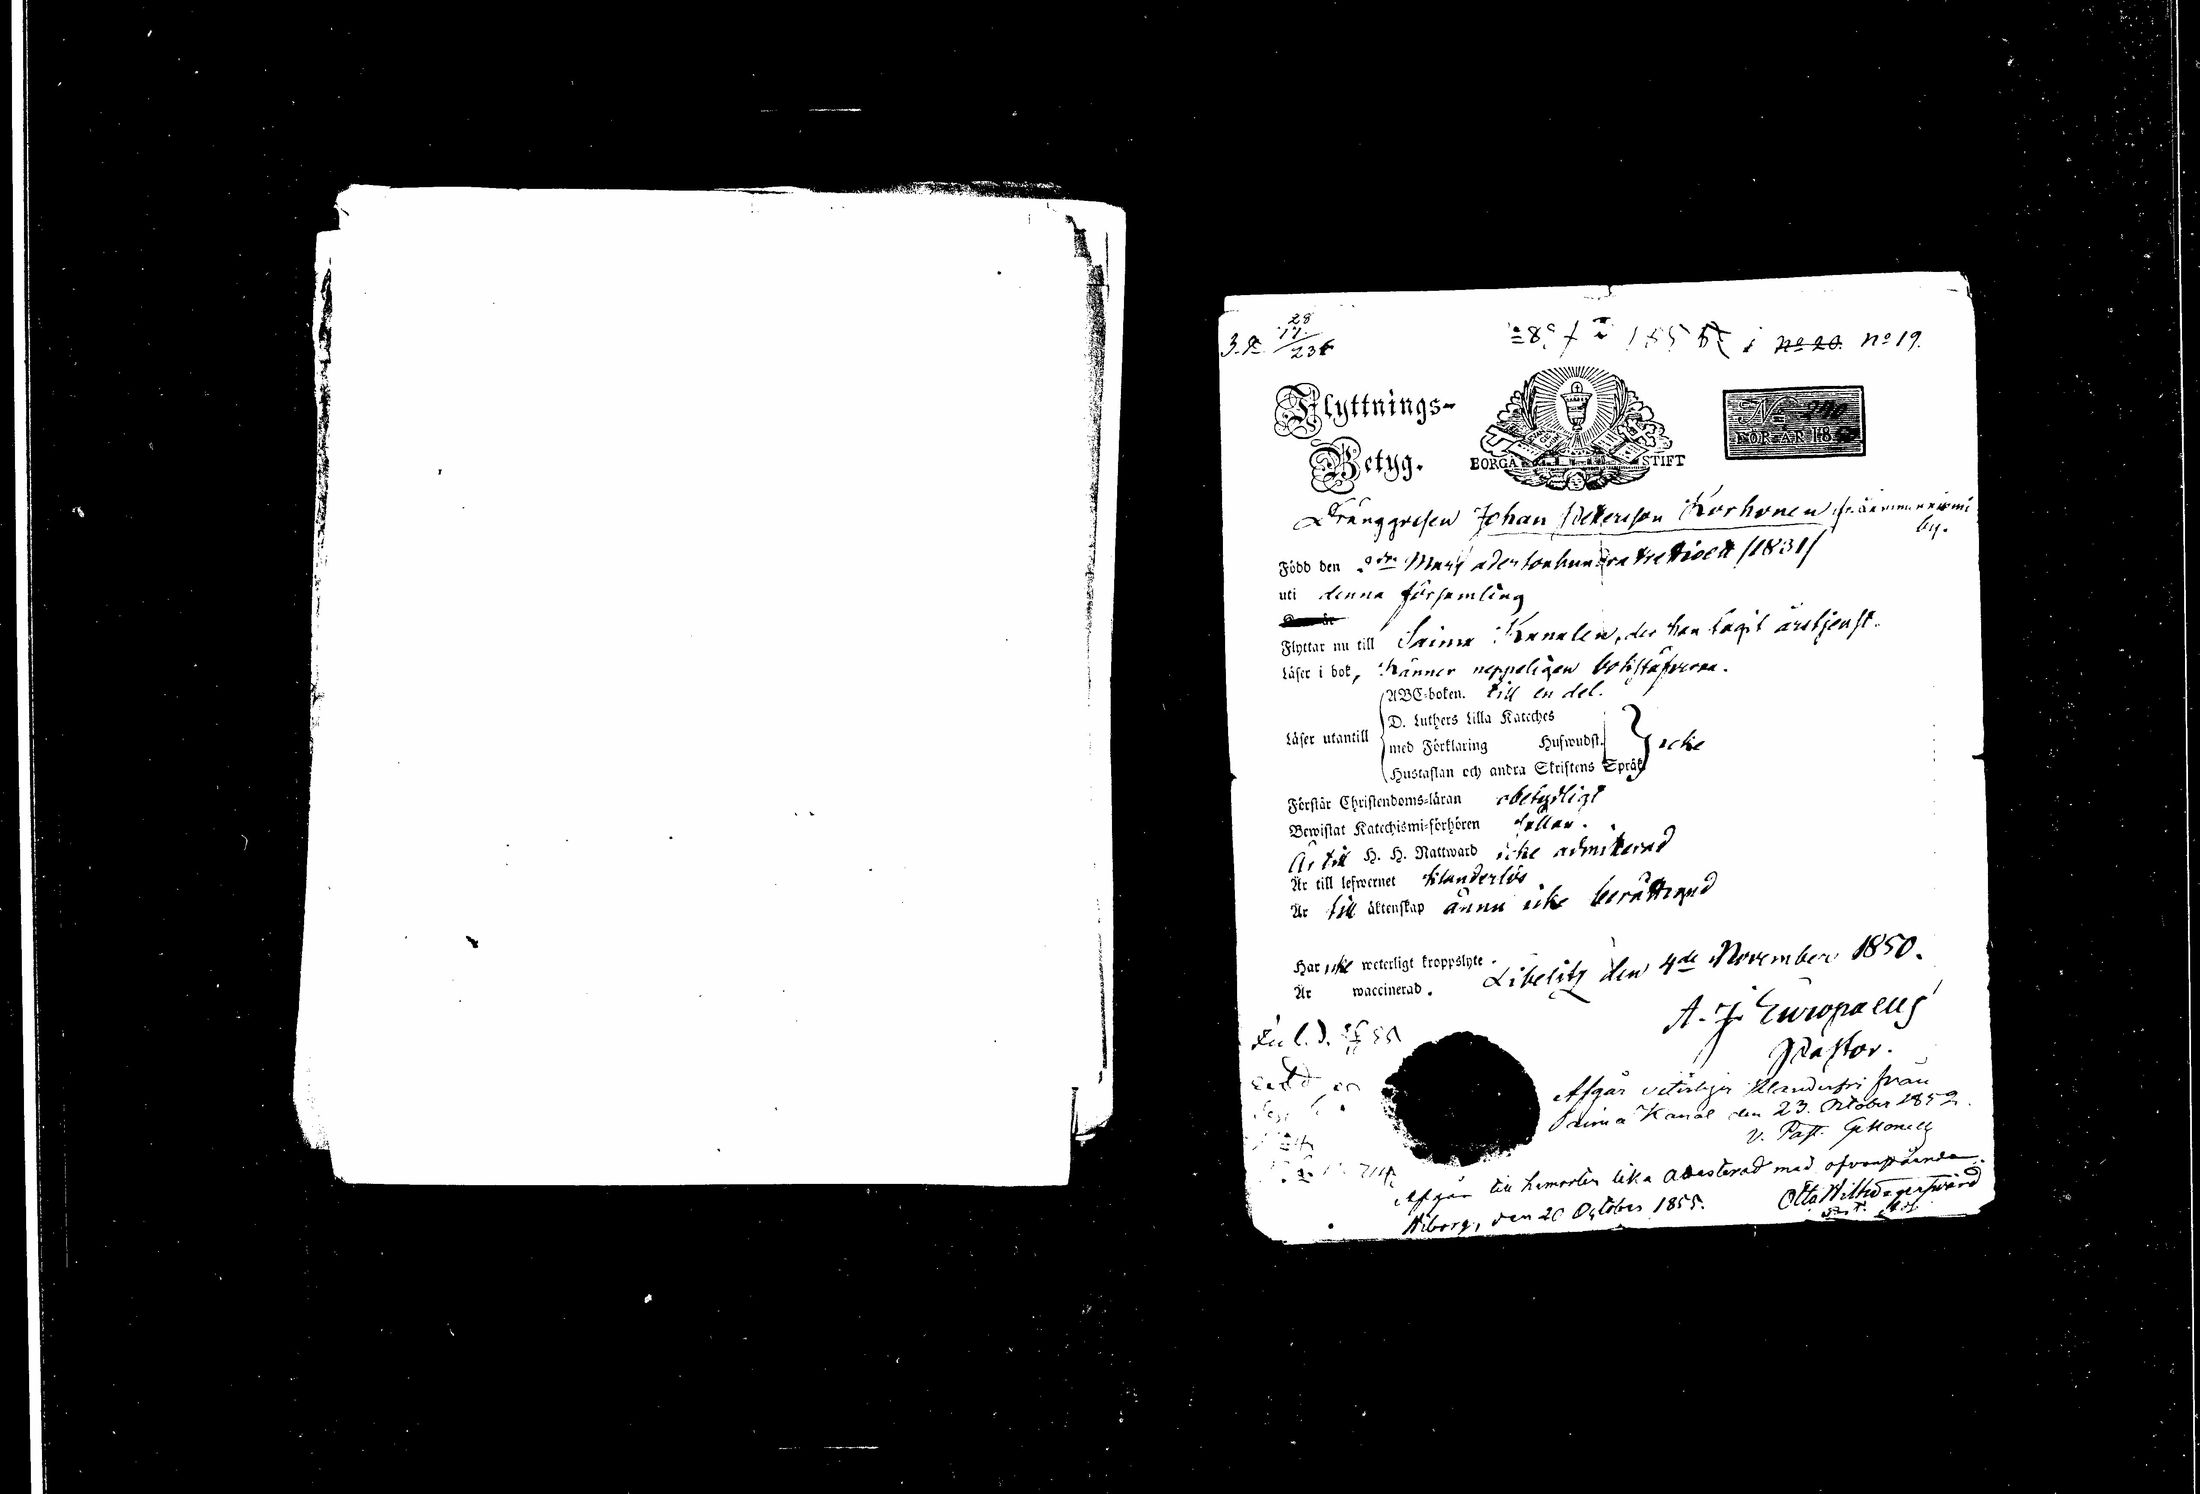 28
17
3.R. 236
1855 i No 20. No 19.
Flyttnings-
Betyg.
BORGÅ STIFT
No 270
FÖR ÅR 1850
Dränggossen Johan Petersson Korhonen från
by.
Född den 2dra Mars adertonhundratrettioett /1831/
uti denna församling
Flyttar nu till Saima Kanalen, der han tagit årstjenst.
Läser i bok, känner neppeligen bokstäfverna.
ABC-boken. till en del.
D. Luthers Lilla Kateches
Läser utantill
med Förklaring Hufwudst. icke
Hustaflan och andra Skriftens Språk
Förstår Christendoms-läran obetydligt
Bewistat Katechismi-förhören sällan.
Är till H. H. Nattward icke admitterad
Är till lefwernet klanderlös
Är till äktenskap ännu icke berättigad
Har icke weterligt kroppslyte.
Libelitz den 4de November 1850.
Är waccinerad.
A. J. Europaeus
Pastor.
Afgår veterligen klanderfri från
Saima Kanal den 23. Oktober 1852.
v. Past.
Afgår till hemorten lika attesterad med ofvanstående.
Wiborg, den 20 October 1855. Otto Wilh.